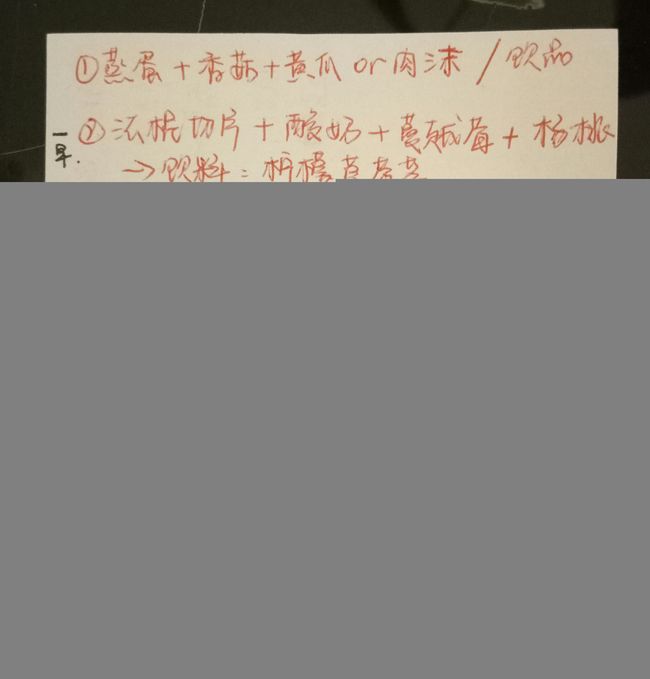 ①蒸蛋+香菇+黄瓜 or 肉沫 / 饮品
一早.
②法棍切片+酸奶+蔓越莓+杨桃
→饮料:柠檬